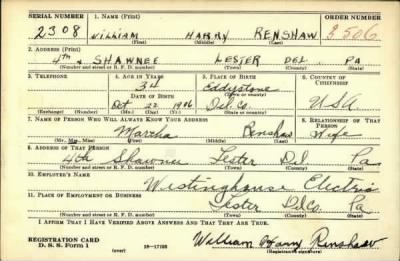 SERIAL NUMBER 1. NAME (Print) ORDER NUMBER
2308 WILLIAM HARRY RENSHAW 3506
(First) (Middle) (Last)
2. ADDRESS (Print)
4TH & SHAWNEE LESTER DEL. PA
(Number and street or R. F. D. number) (Town) (County) (State)
3. TELEPHONE 4. AGE IN YEARS 5. PLACE OF BIRTH 6. COUNTRY OF CITIZENSHIP
34 Eddystone
DATE OF BIRTH (Town or county)
Oct 22 1906 Del. Co. USA
(Exchange) (Number) (Mo.) (Day) (Yr.) (State or country)
7. NAME OF PERSON WHO WILL ALWAYS KNOW YOUR ADDRESS 8. RELATIONSHIP OF THAT PERSON
Martha Renshaw Wife
(Mr., Mrs., Miss) (First) (Middle) (Last)
9. ADDRESS OF THAT PERSON
4th Shawnee Lester Del Pa
(Number and street or R. F. D. number) (Town) (County) (State)
10. EMPLOYER'S NAME
Westinghouse Electric
11. PLACE OF EMPLOYMENT OR BUSINESS
Lester Del Co. Pa
(Number and street or R. F. D. number) (Town) (County) (State)
I AFFIRM THAT I HAVE VERIFIED ABOVE ANSWERS AND THAT THEY ARE TRUE.
REGISTRATION CARD
D. S. S. Form 1 (over) 16-17105 William Harry Renshaw
(Registrant's signature)